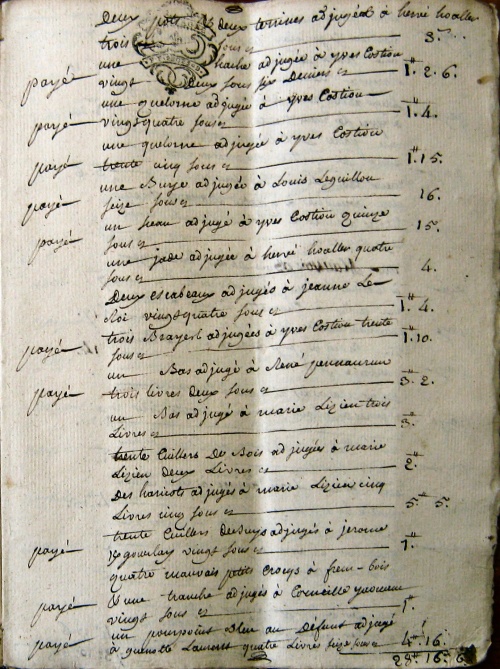 Deux pots & deux terrines adjugés à hervé hoallec
trois sous 3.
une hache adjugée à yves Costiou
payé vingt Deux sous six Deniers cy 1.# 2. 6.
une quelorne adjugée à yves Costiou
payé vingt quatre sous cy 1.# 4.
une quelorne adjugée à yves Costiou
payé trente cinq sous cy 1.# 15.
une Buye adjugée à Louis Leguillou
payé seize sous cy 16.
un seau adjugé à yves Costiou quinze
payé sous cy 15.
une jade adjugée à hervé hoallec quatre
sous cy 4.
Deux escabeaux adjugés à jeanne Le
Roi vingt quatre sous cy 1.# 4.
trois adjugées à yves Costiou trente
payé sous cy 1.# 10.
un Bas adjugé à René
payé trois livres deux sous cy 3.# 2.
un Bas adjugé à marie Lizien trois
Livres cy 3.#
trente Cuillers De Bois adjugées à marie
Lizien deux Livres cy 2.#
Des haricots adjugés à marie Lizien cinq
Livres cinq sous cy 5.# 5.
trente Cuillers De Buys adjugés à jerome
payé gourlay vingt sous cy 1.#
quatre mauvais petits à
& une tranche adjugés à Corneille
payé vingt sous cy 1.#
un pourpoint Bleu au Défunt adjugé
payé à guenolé Laurent quatre Livres seize sous cy 4.# 16.
28.# 16. 6.